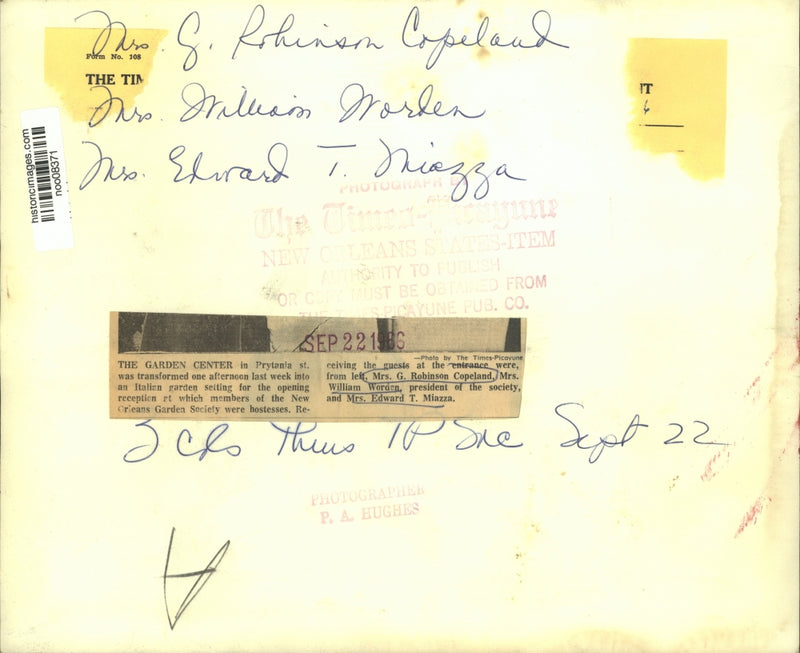 Mrs. G. Robinson Copeland
Form No. 108
THE TIM
Mrs. William Worden
Mrs. Edward T. Miazza
NT
6
historicimages.com
noo08371
PHOTOGRAPH BY
The Times-Picayune
NEW ORLEANS STATES-ITEM
AUTHORITY TO PUBLISH
OR COPY MUST BE OBTAINED FROM
THE TIMES-PICAYUNE PUB. CO.
SEP 22 1966
—Photo by The Times-Picayune
THE GARDEN CENTER in Prytania st.
was transformed one afternoon last week into
an Italian garden setting for the opening
reception at which members of the New
Orleans Garden Society were hostesses. Re-
ceiving the guests at the entrance were,
from left, Mrs. G. Robinson Copeland, Mrs.
William Worden, president of the society,
and Mrs. Edward T. Miazza.
3 cols Thurs TP Soc Sept 22
PHOTOGRAPHER
P. A. HUGHES